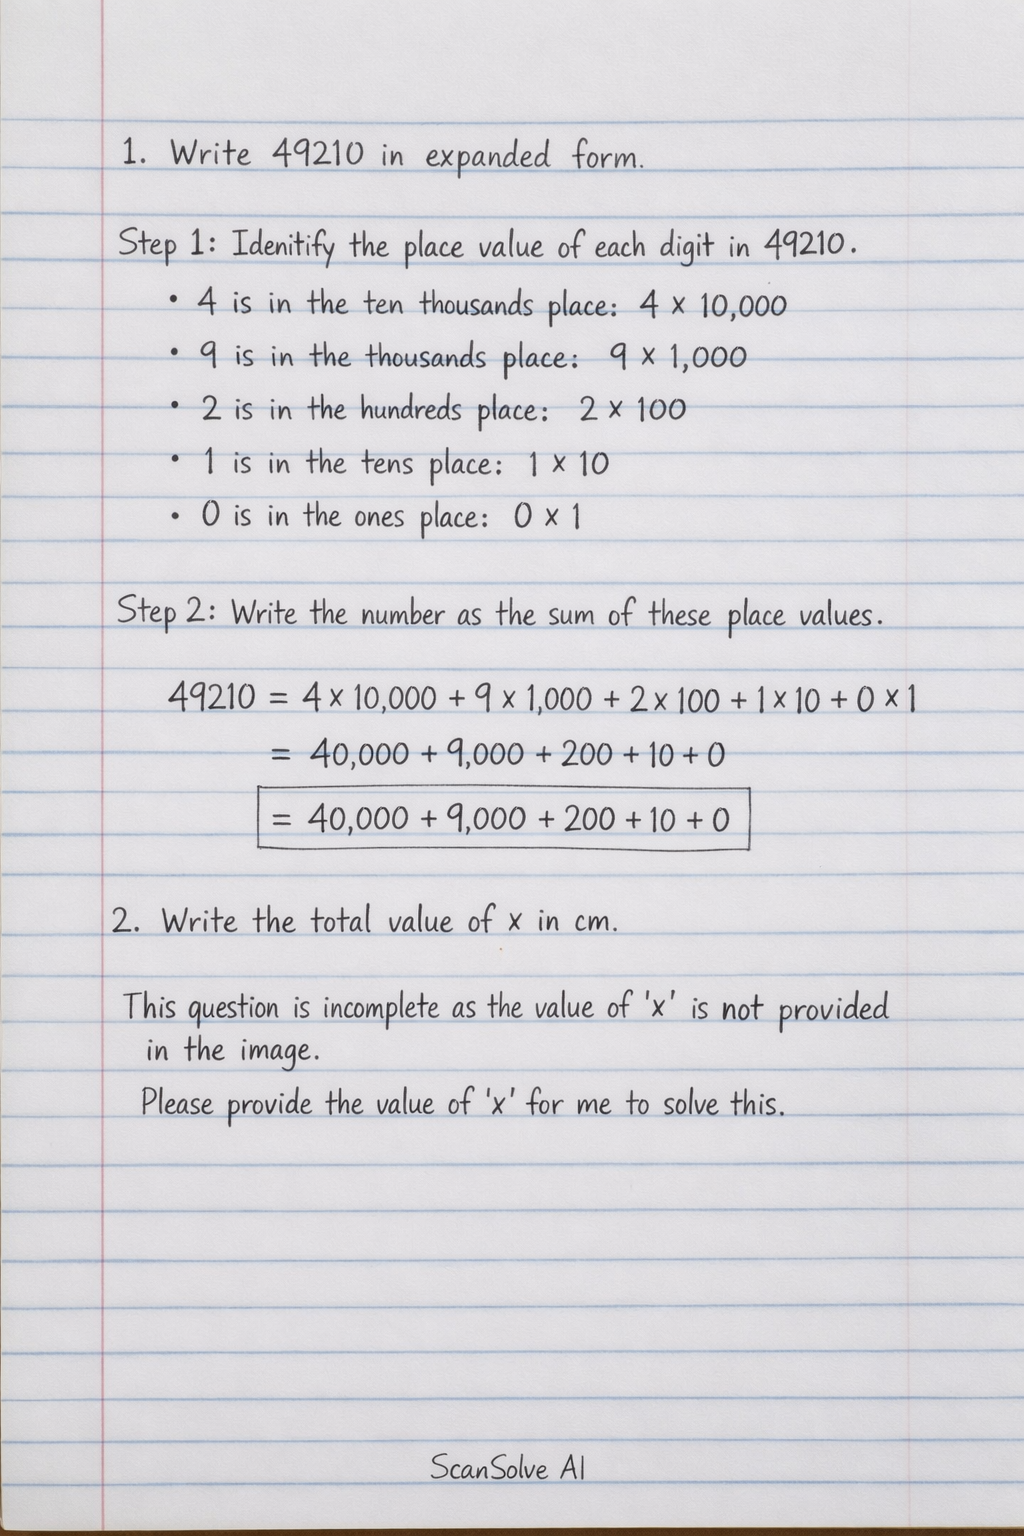 1. Write 49210 in expanded form.
Step 1: Idenitify the place value of each digit in 49210.
• 4 is in the ten thousands place: 4 × 10,000
• 9 is in the thousands place: 9 × 1,000
• 2 is in the hundreds place: 2 × 100
• 1 is in the tens place: 1 × 10
• 0 is in the ones place: 0 × 1
Step 2: Write the number as the sum of these place values.
49210 = 4 × 10,000 + 9 × 1,000 + 2 × 100 + 1 × 10 + 0 × 1
= 40,000 + 9,000 + 200 + 10 + 0
= 40,000 + 9,000 + 200 + 10 + 0
2. Write the total value of x in cm.
This question is incomplete as the value of 'x' is not provided
in the image.
Please provide the value of 'x' for me to solve this.
ScanSolve AI